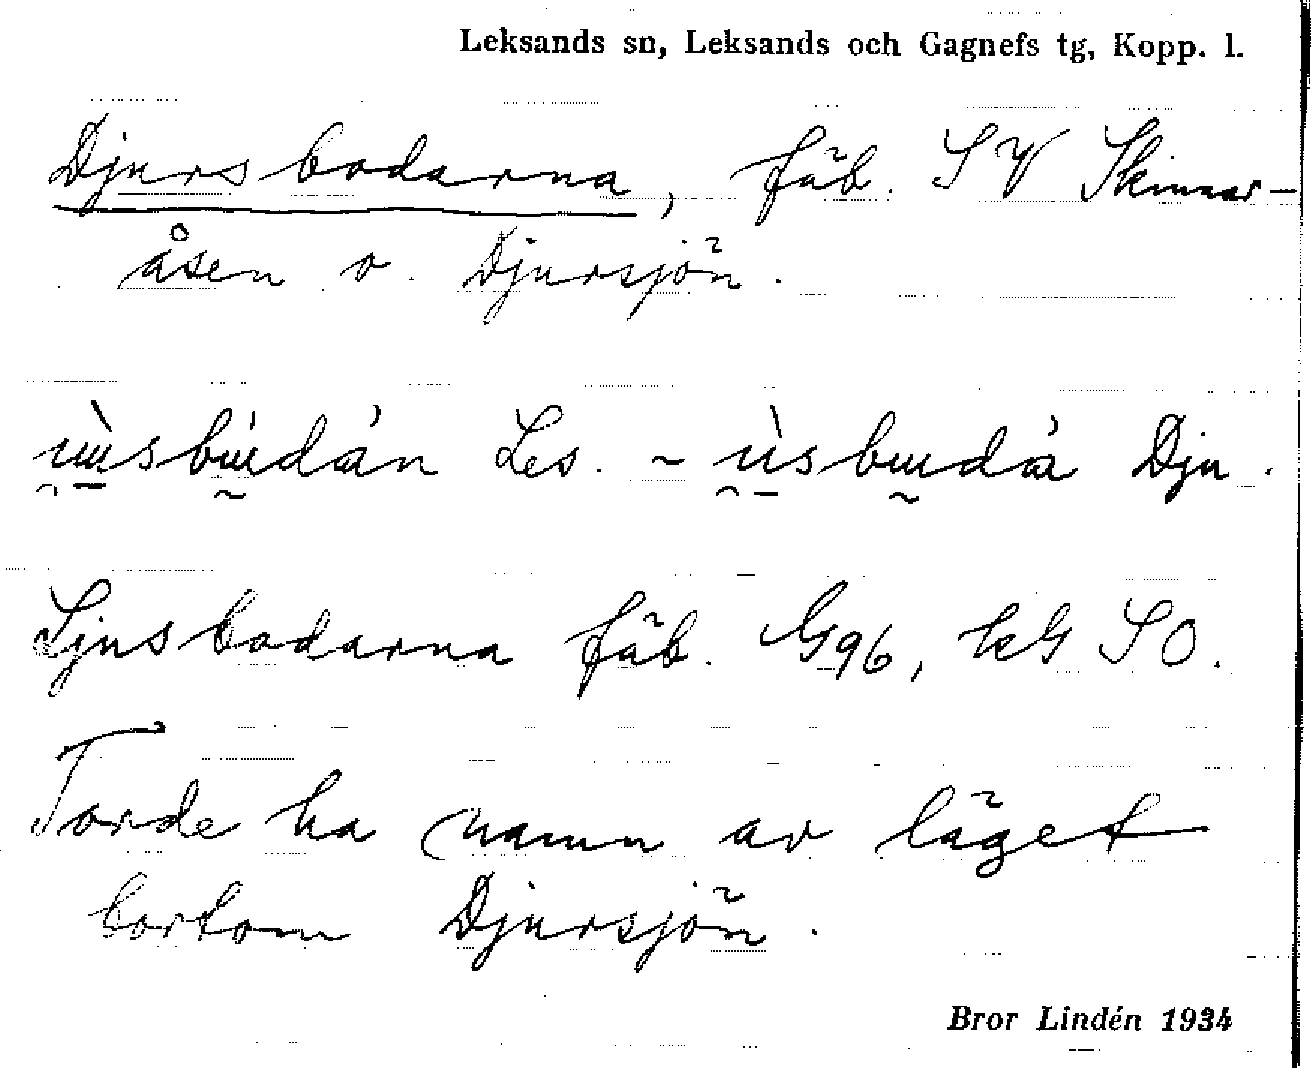 Leksands sn, Leksands och Gagnefs tg, Kopp. l.
Djursbodarna, fäb. SV Skinnar-
åsen o. Djursjön.
Les. ~ Dju.
Ljusbodarna fäb. G96, kG SO.
Torde ha namn av läget
bortom Djursjön.
Bror Lindén 1934